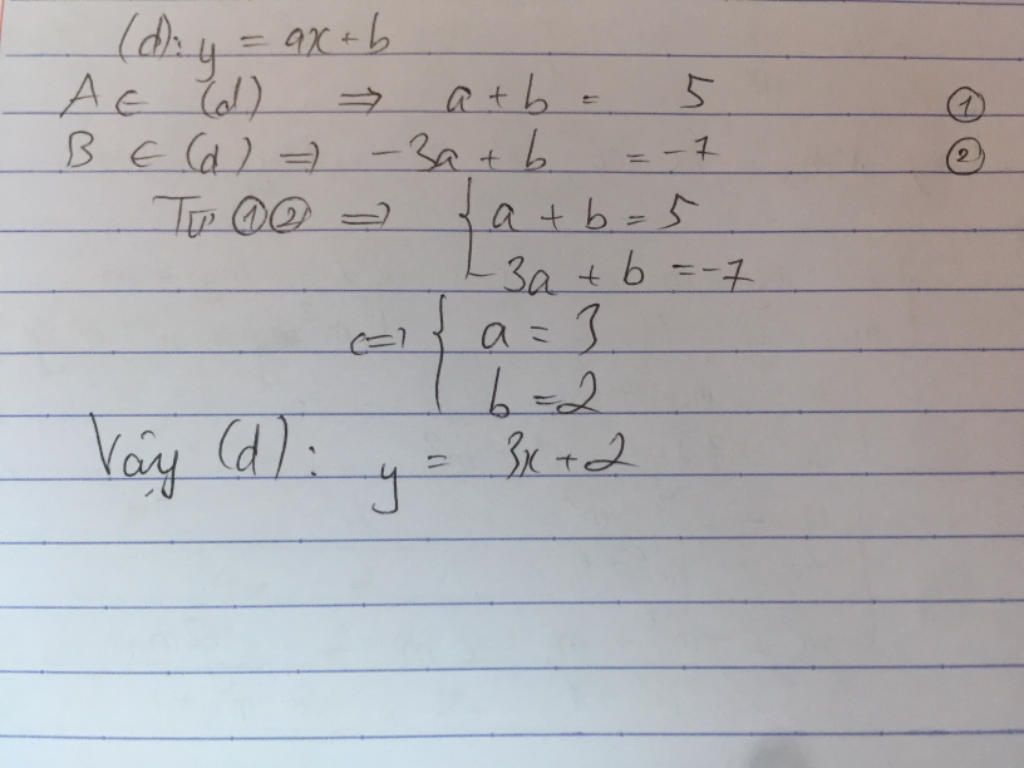 (d): y = ax + b
A ∈ (d) ⇒ a + b = 5 ①
B ∈ (d) ⇒ -3a + b = -7 ②
Từ ①② ⇒ { a + b = 5
-3a + b = -7
<=> { a = 3
b = 2
Vậy (d): y = 3x + 2